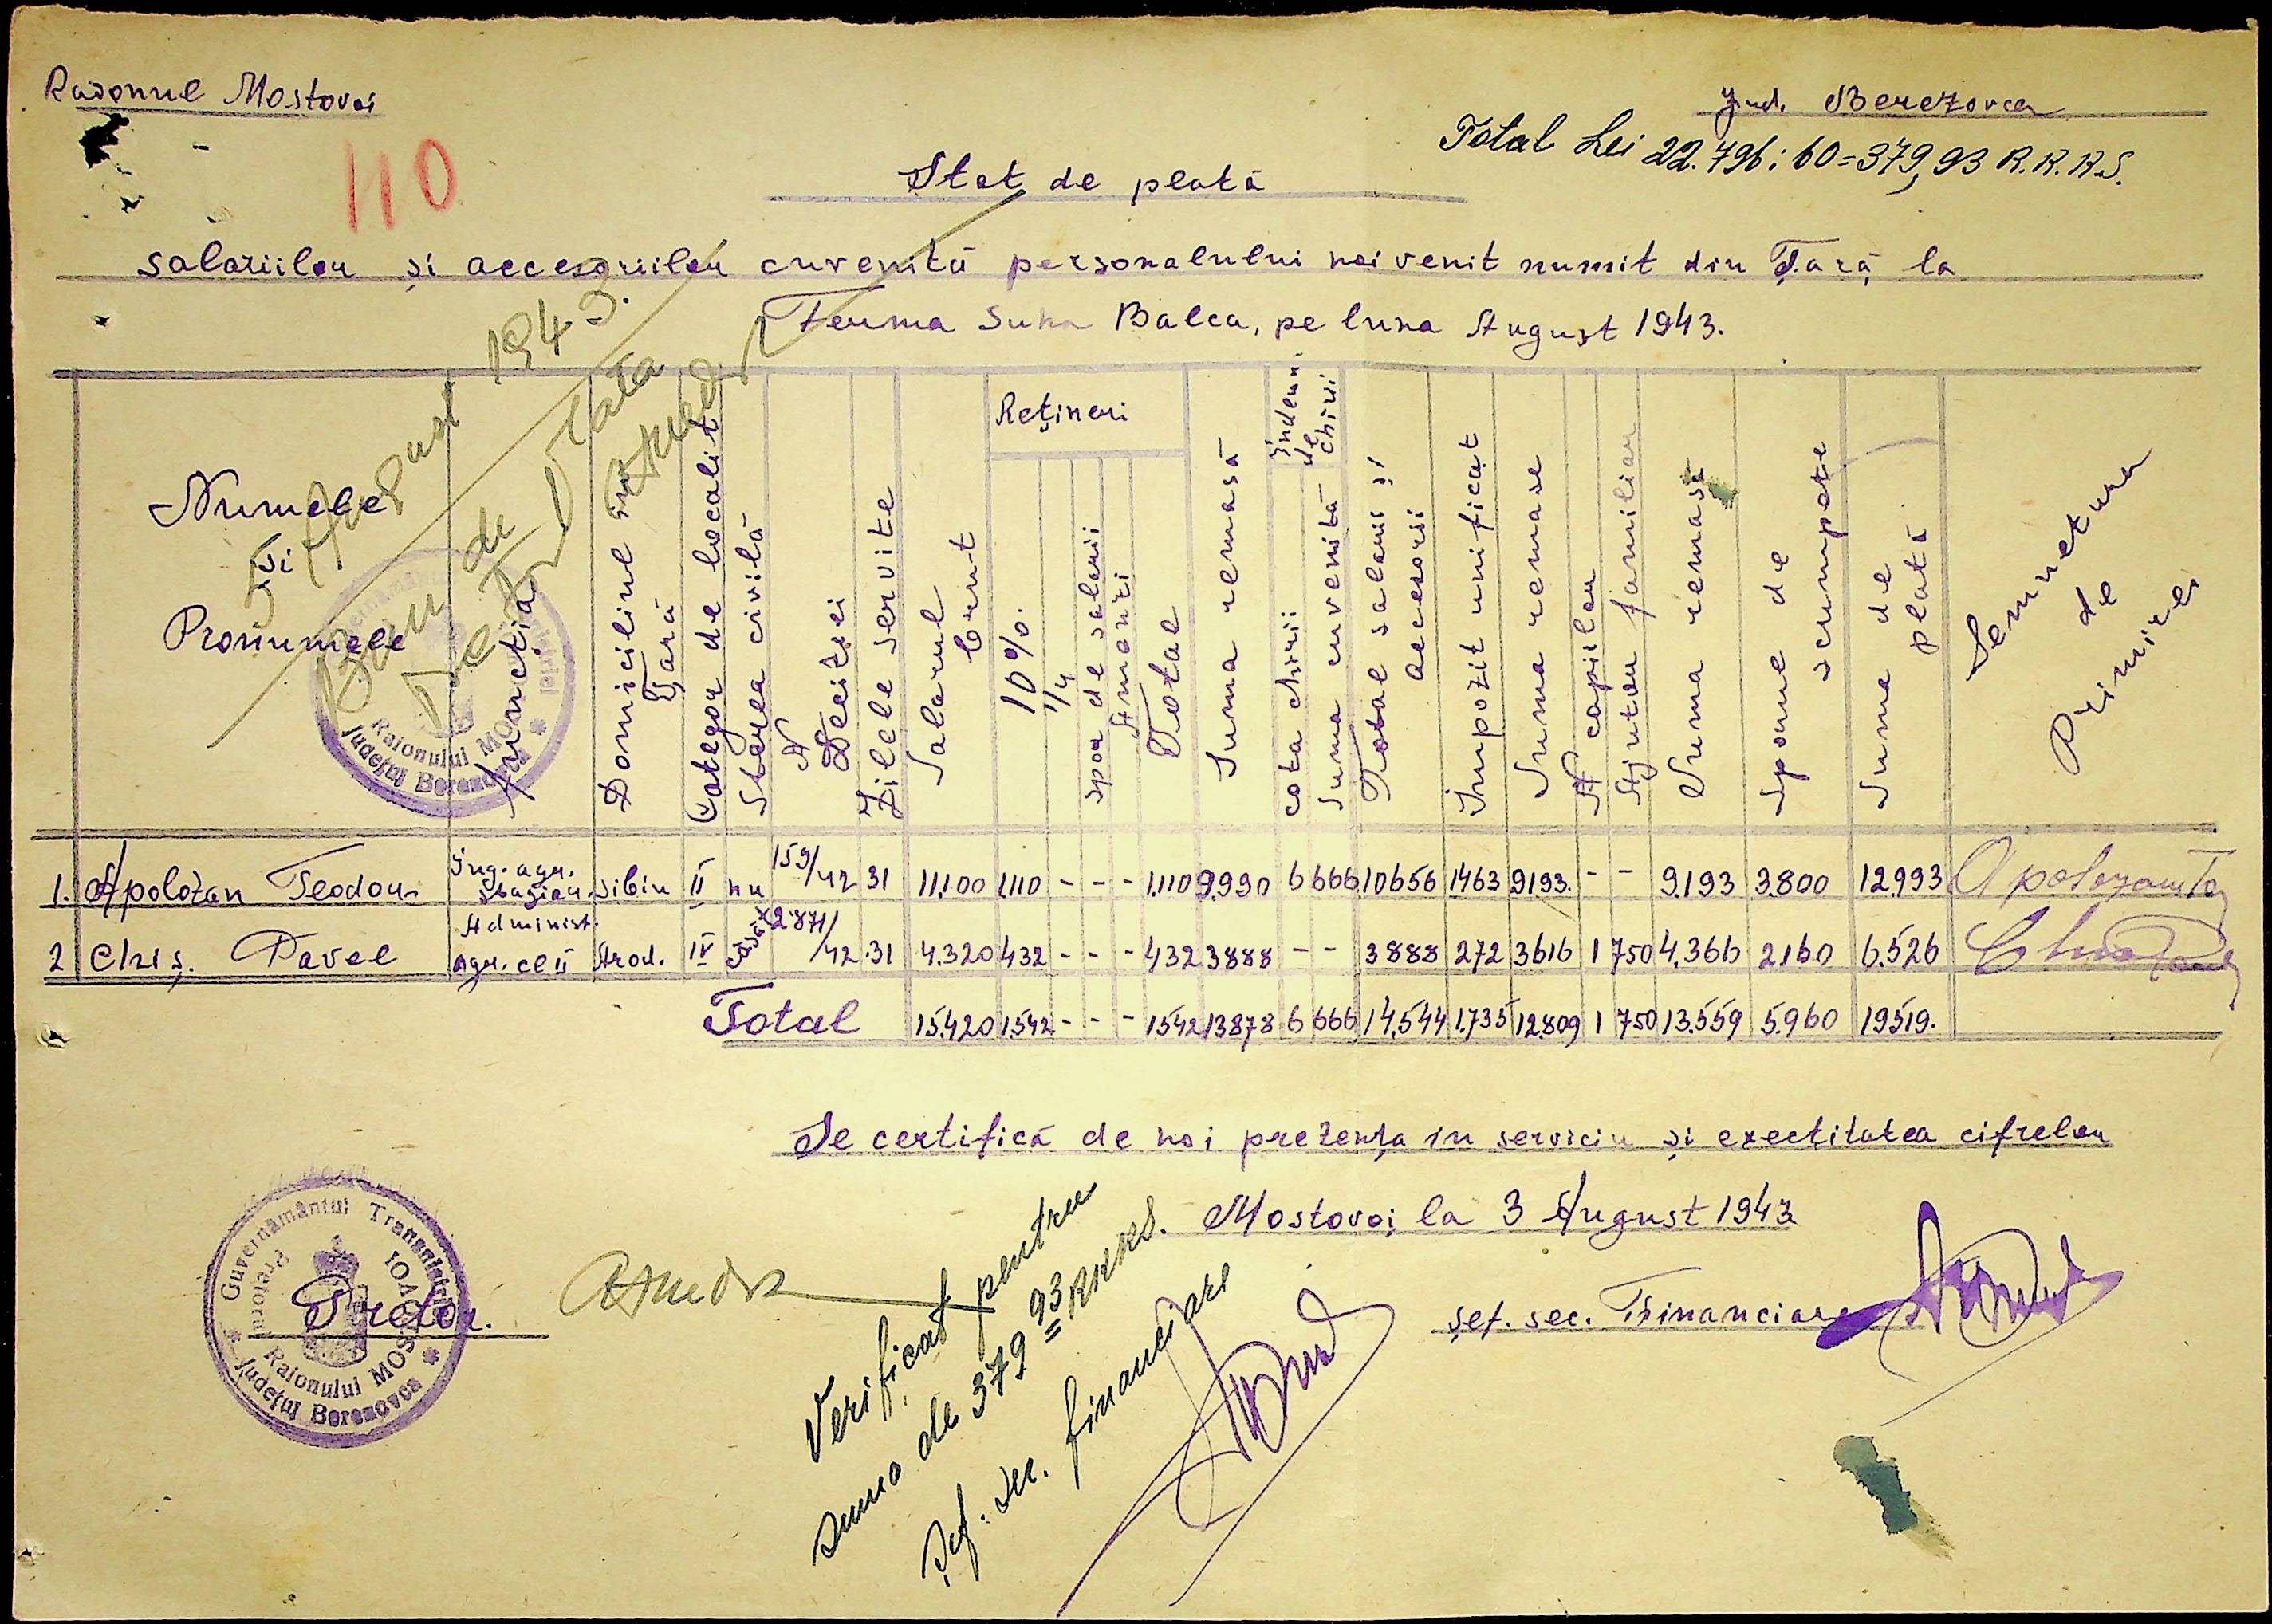 Raionul Mostovoi
Jud. Berezovca
110
Total Lei 22.796 : 60 = 379,93 R.K.K.S.
Stat de plată
salariilor și accesoriilor cuvenită personalului noi venit numit din Țară la
Ferma Suha Balca, pe luna August 1943.
5 August 1943.
Bun de Plata
Numele și Pronumele
Funcția
Domiciliul în Țară
Categor de localit
Starea civilă
N Deciziei
Zilele servite
Salarul brut
Rețineri
10%.
1/4
spor de salarii
Amenzi
Total
Suma remasă
Indemn de chirii
cota chirii
Suma cuvenită
Total salarii și accesorii
Impozit unificat
Suma remase
N copiilor
Ajutor familiar
Suma remasă
Sporul de scumpete
Suma de plată
Semnetura de Primire
1. Apolozan Teodor Ing. agr. stagiar. Sibiu II nu 159/42 31 11.100 1.110 - - - 1.110 9.990 6 666 10656 1463 9193. - - 9.193 3.800 12.993
2 Chiș. Pavel Administ. agr. cl II Arad. IV căsăt 2.871/42 31 4.320 432 - - - 432 3888 - - 3888 272 3616 1 750 4.366 2.160 6.526
Total 15.420 1.542 - - - 1542 13878 6 666 14.544 1.735 12.809 1 750 13.559 5.960 19519.
Se certifică de noi prezența in serviciu și exectitatea cifrelor
Mostovoi la 3 August 1943
Guvernământul Transnistriei
Pretorul
Raionului MOSTOVOI
Județul Berezovca
Pretor.
șef. sec. Financiare
Verificat pentru
suma de 379 93 RKKS.
Șef. sec. financiare